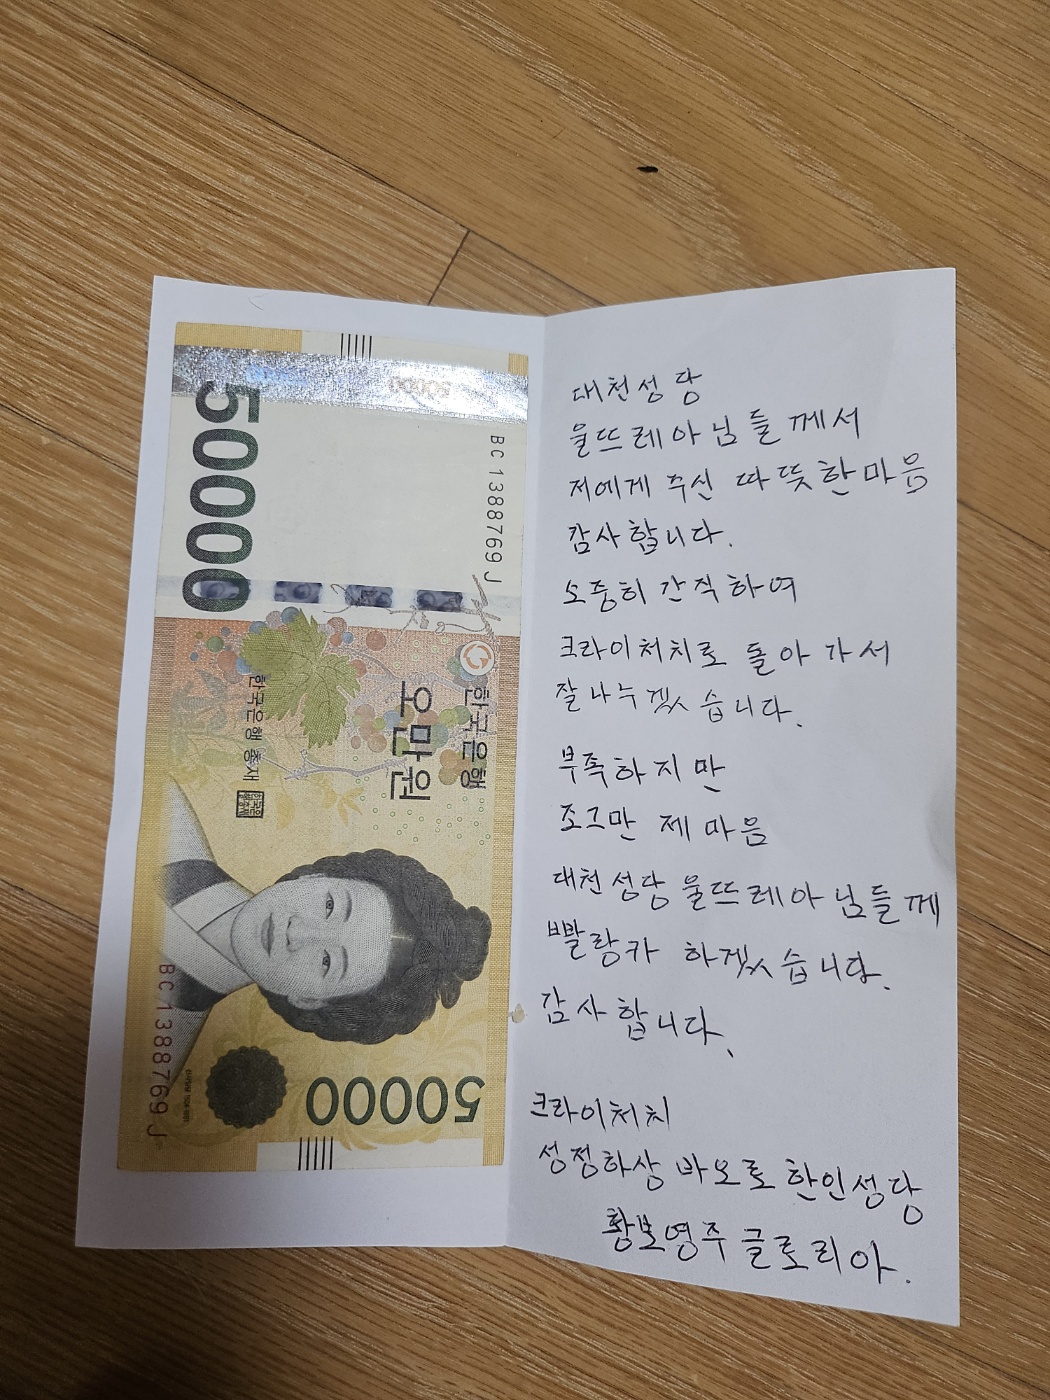 50000
50000
BC1388769J
한국은행
오만원
한국은행 총재
BC1388769J
50000
대천성당
울뜨레아님들께서
저에게 주신 따뜻한마음
감사합니다.
소중히 간직하여
크라이처치로 돌아가서
잘나누겠습니다.
부족하지만
조그만 제 마음
대천성당 울뜨레아님들께
빨랑카 하겠습니다.
감사합니다.
크라이처치
성정하상 바오로 한인성당
황보영주 글로리아.